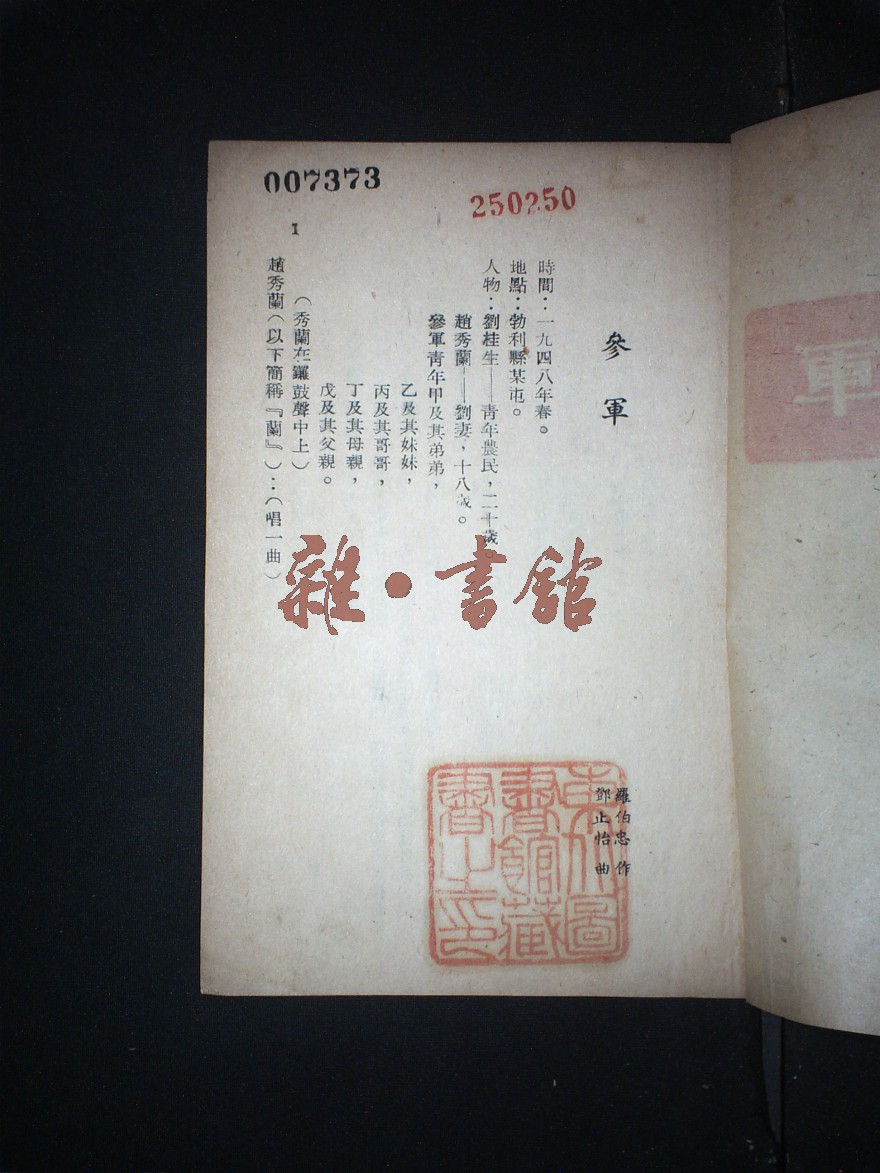 007373
250250
參軍
羅伯忠 作
鄧止怡 曲
時間：一九四八年春。
地點：勃利縣某屯。
人物：劉桂生——青年農民，二十歲
趙秀蘭——劉妻，十八歲。
參軍青年甲及其弟弟，
乙及其妹妹，
丙及其哥哥，
丁及其母親，
戊及其父親。
（秀蘭在鑼鼓聲中上）
趙秀蘭（以下簡稱『蘭』）：（唱一曲）
1
雜·書館
圖
書館藏
書之印
軍